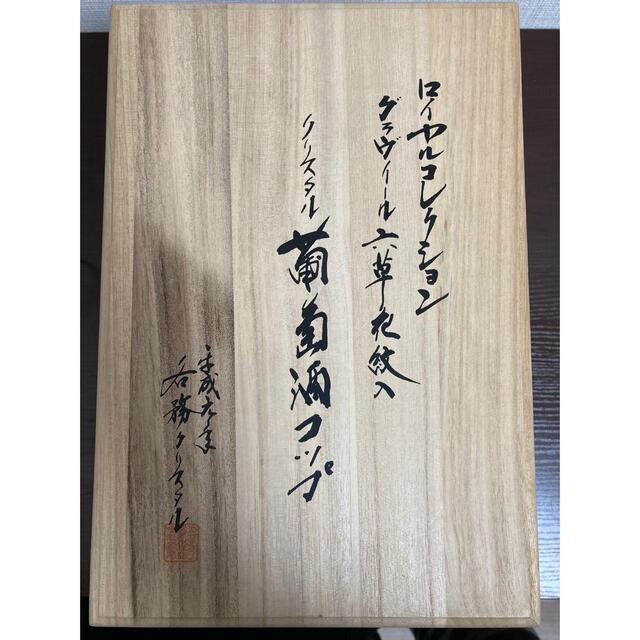 ロイヤルコレクション
グラヴィール六草花紋入
クリスタル葡萄酒コップ
平成元年
各務クリスタル